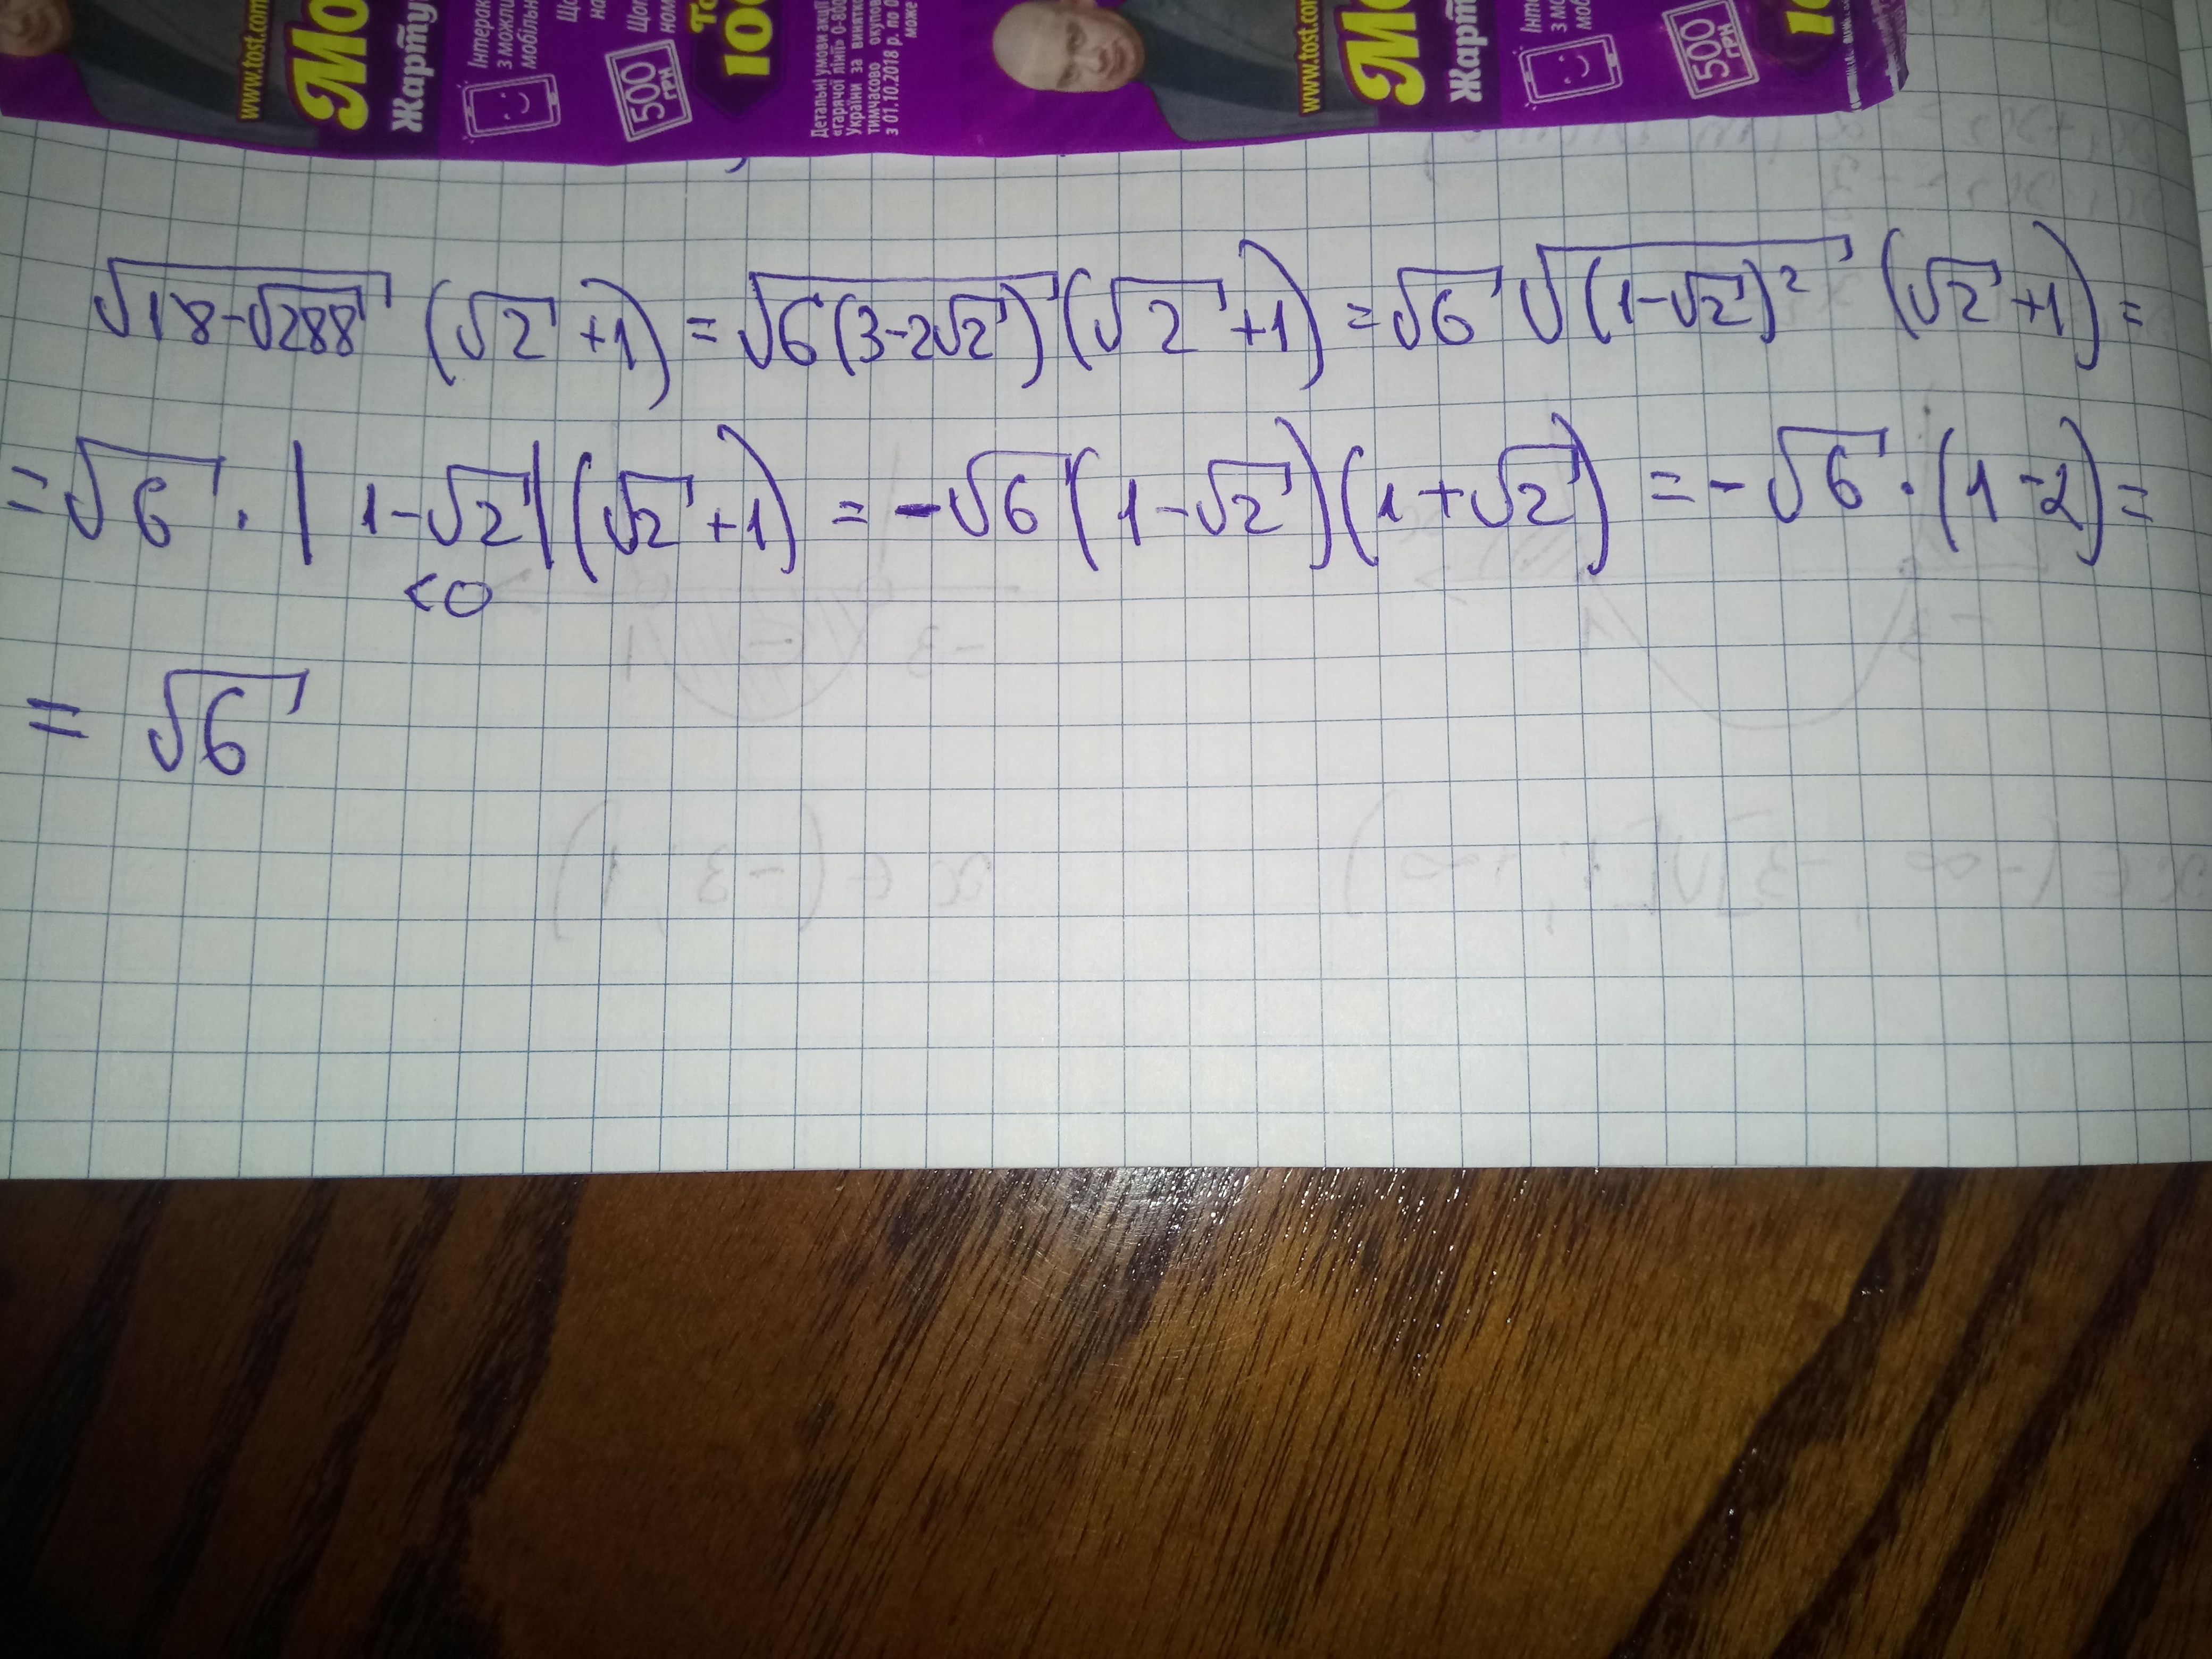 www.tost.com
Мо
Жарту
Інтерак
з можли
мобільн
Що
но
500
ГРН
Щоп
ном
То
100
Детальні умови акції
«гарячої лінії» 0-800
України за винятко
тимчасово окупов
з 01.10.2018 р. по 0
може
www.tost.com
Мо
Жарт
Інте
з мо
моб
500
ГРН
10
√(18-√288) (√2 +1) = √(6(3-2√2)) (√2 +1) = √6 √((1-√2)²) (√2 +1) =
= √6 · |1-√2| (√2 +1) = -√6 (1-√2)(1+√2) = -√6 · (1-2) =
<0
= √6